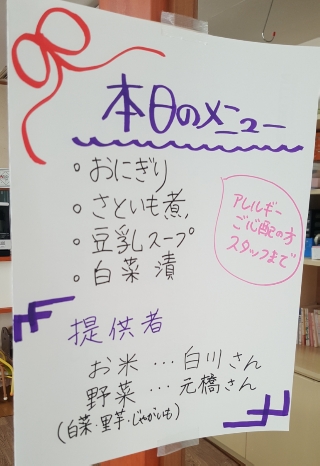 本日のメニュー
。おにぎり
。さといも煮
。豆乳スープ
。白菜漬
アレルギー
ご心配の方
スタッフまで
提供者
お米…白川さん
野菜…元橋さん
(白菜・里芋・じゃがいも)